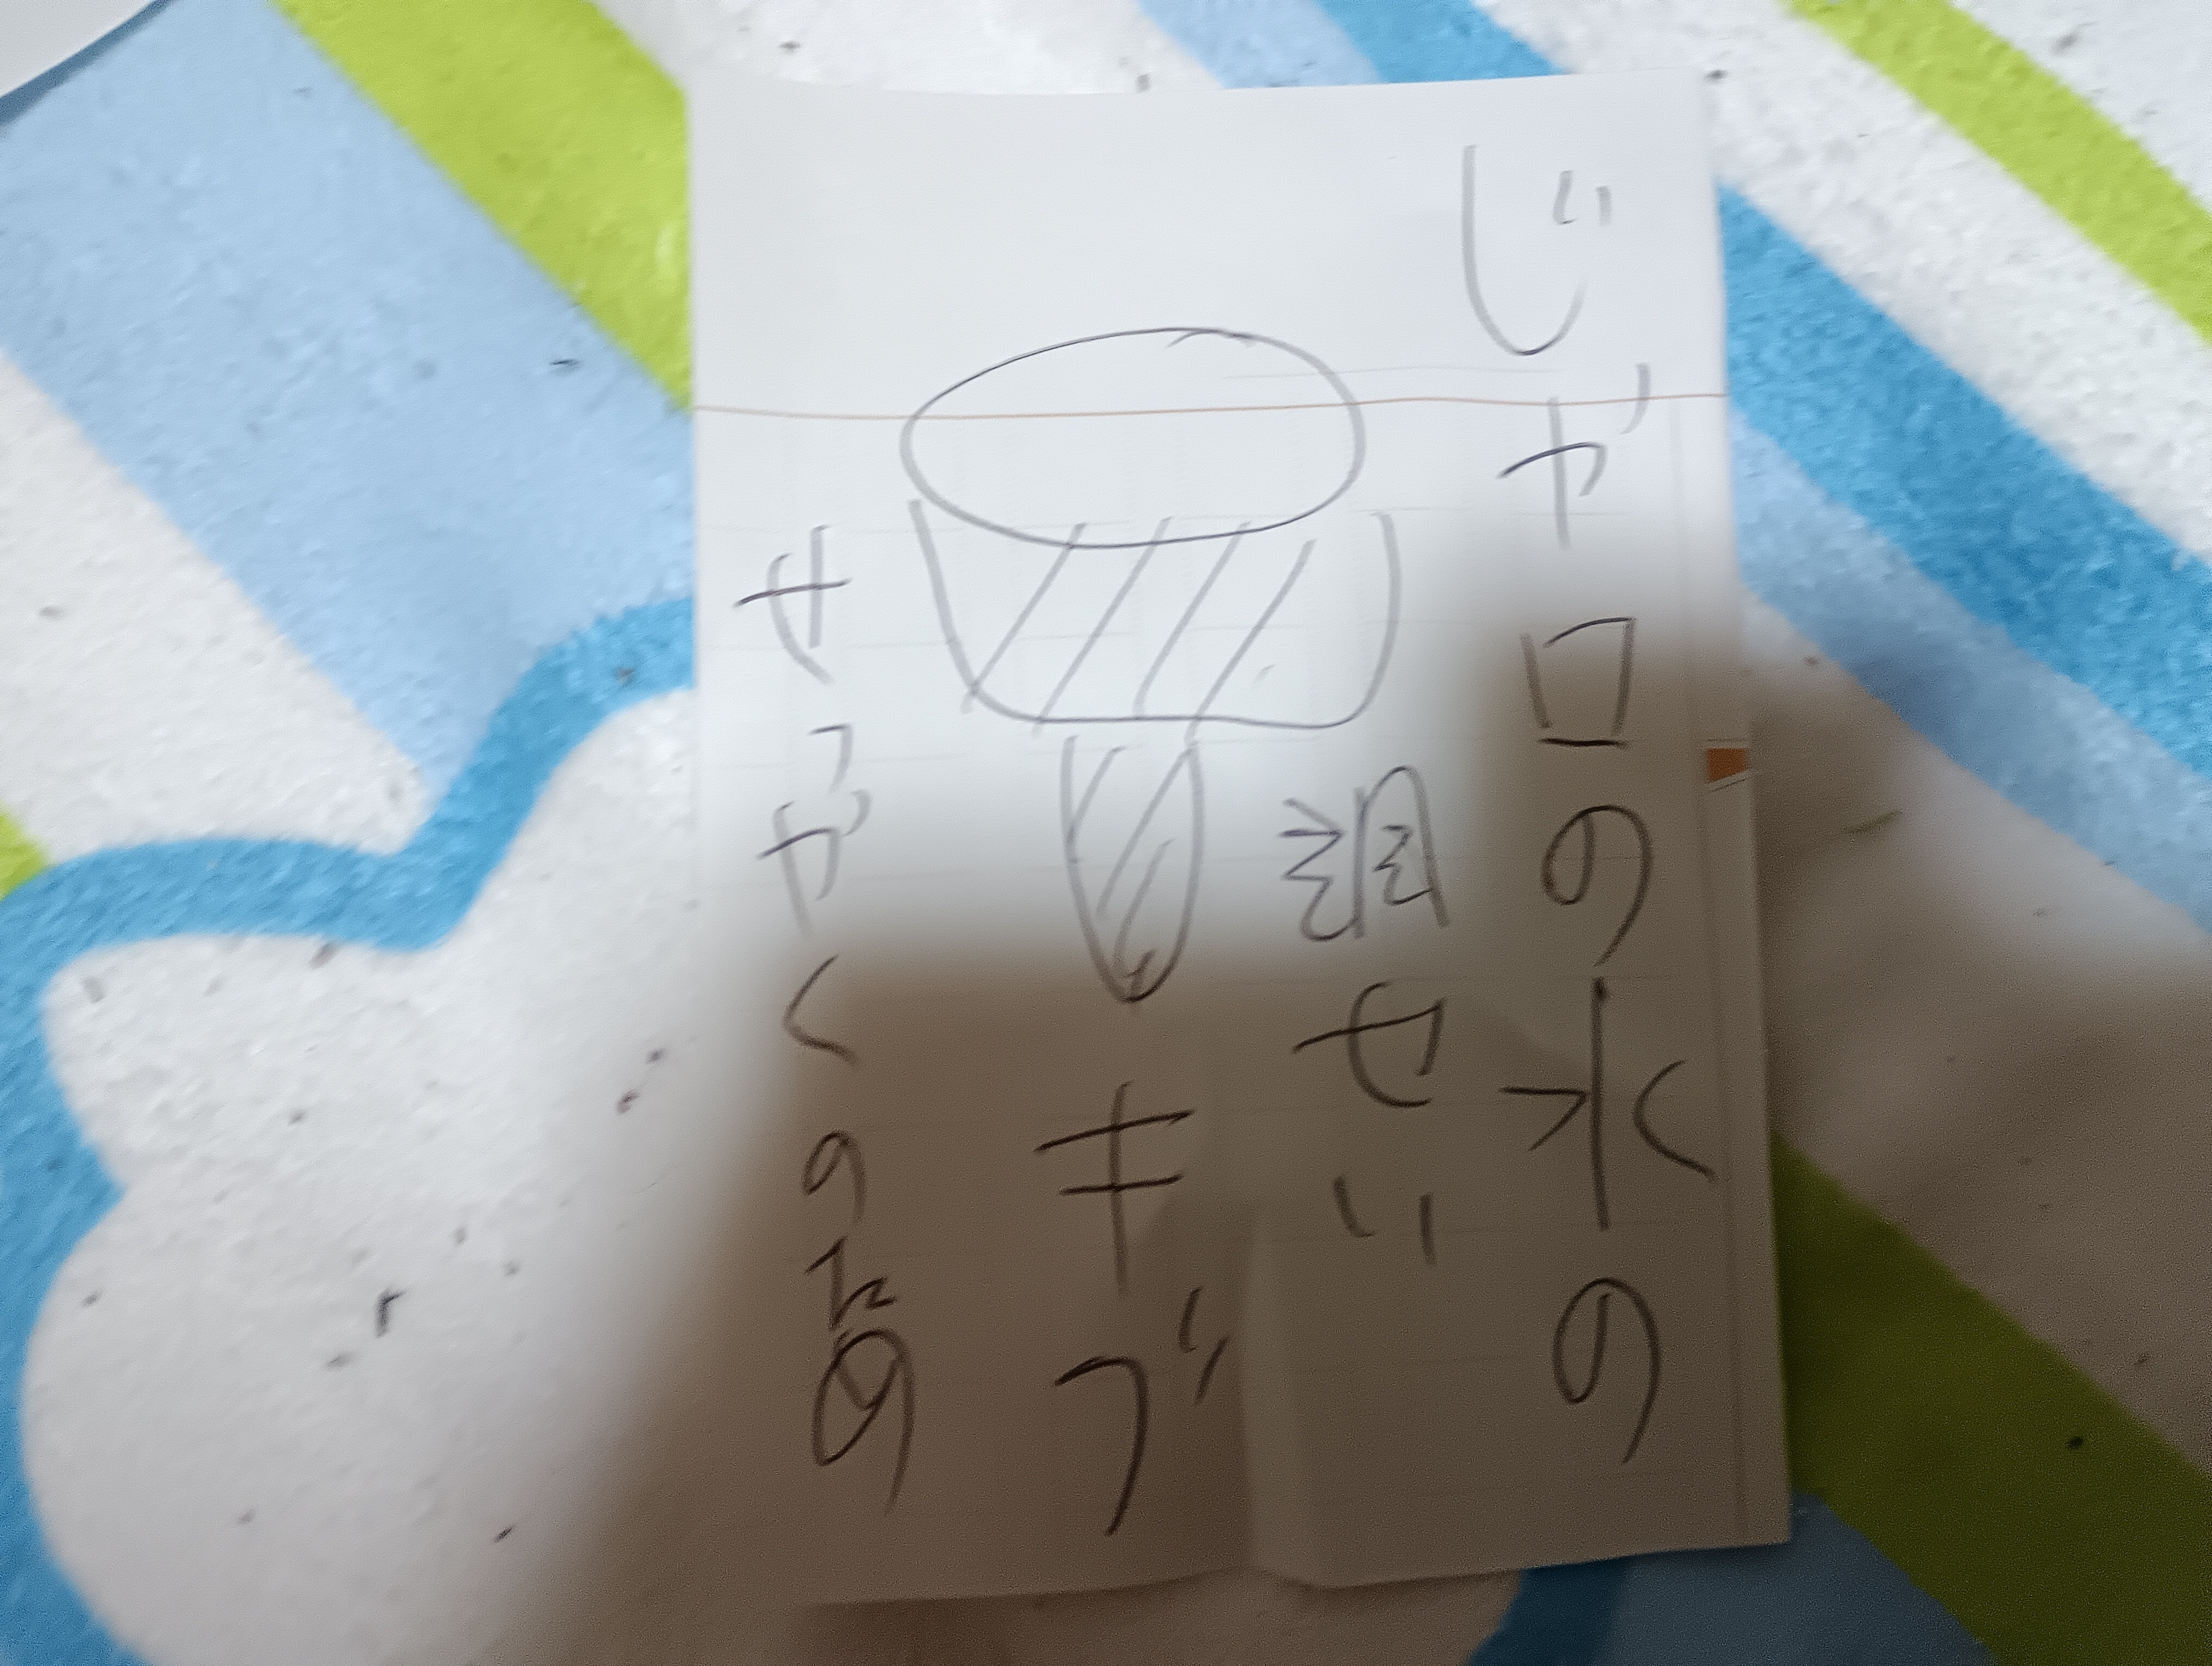 じゃ口の水の
調せい
キブ
せつやくのため